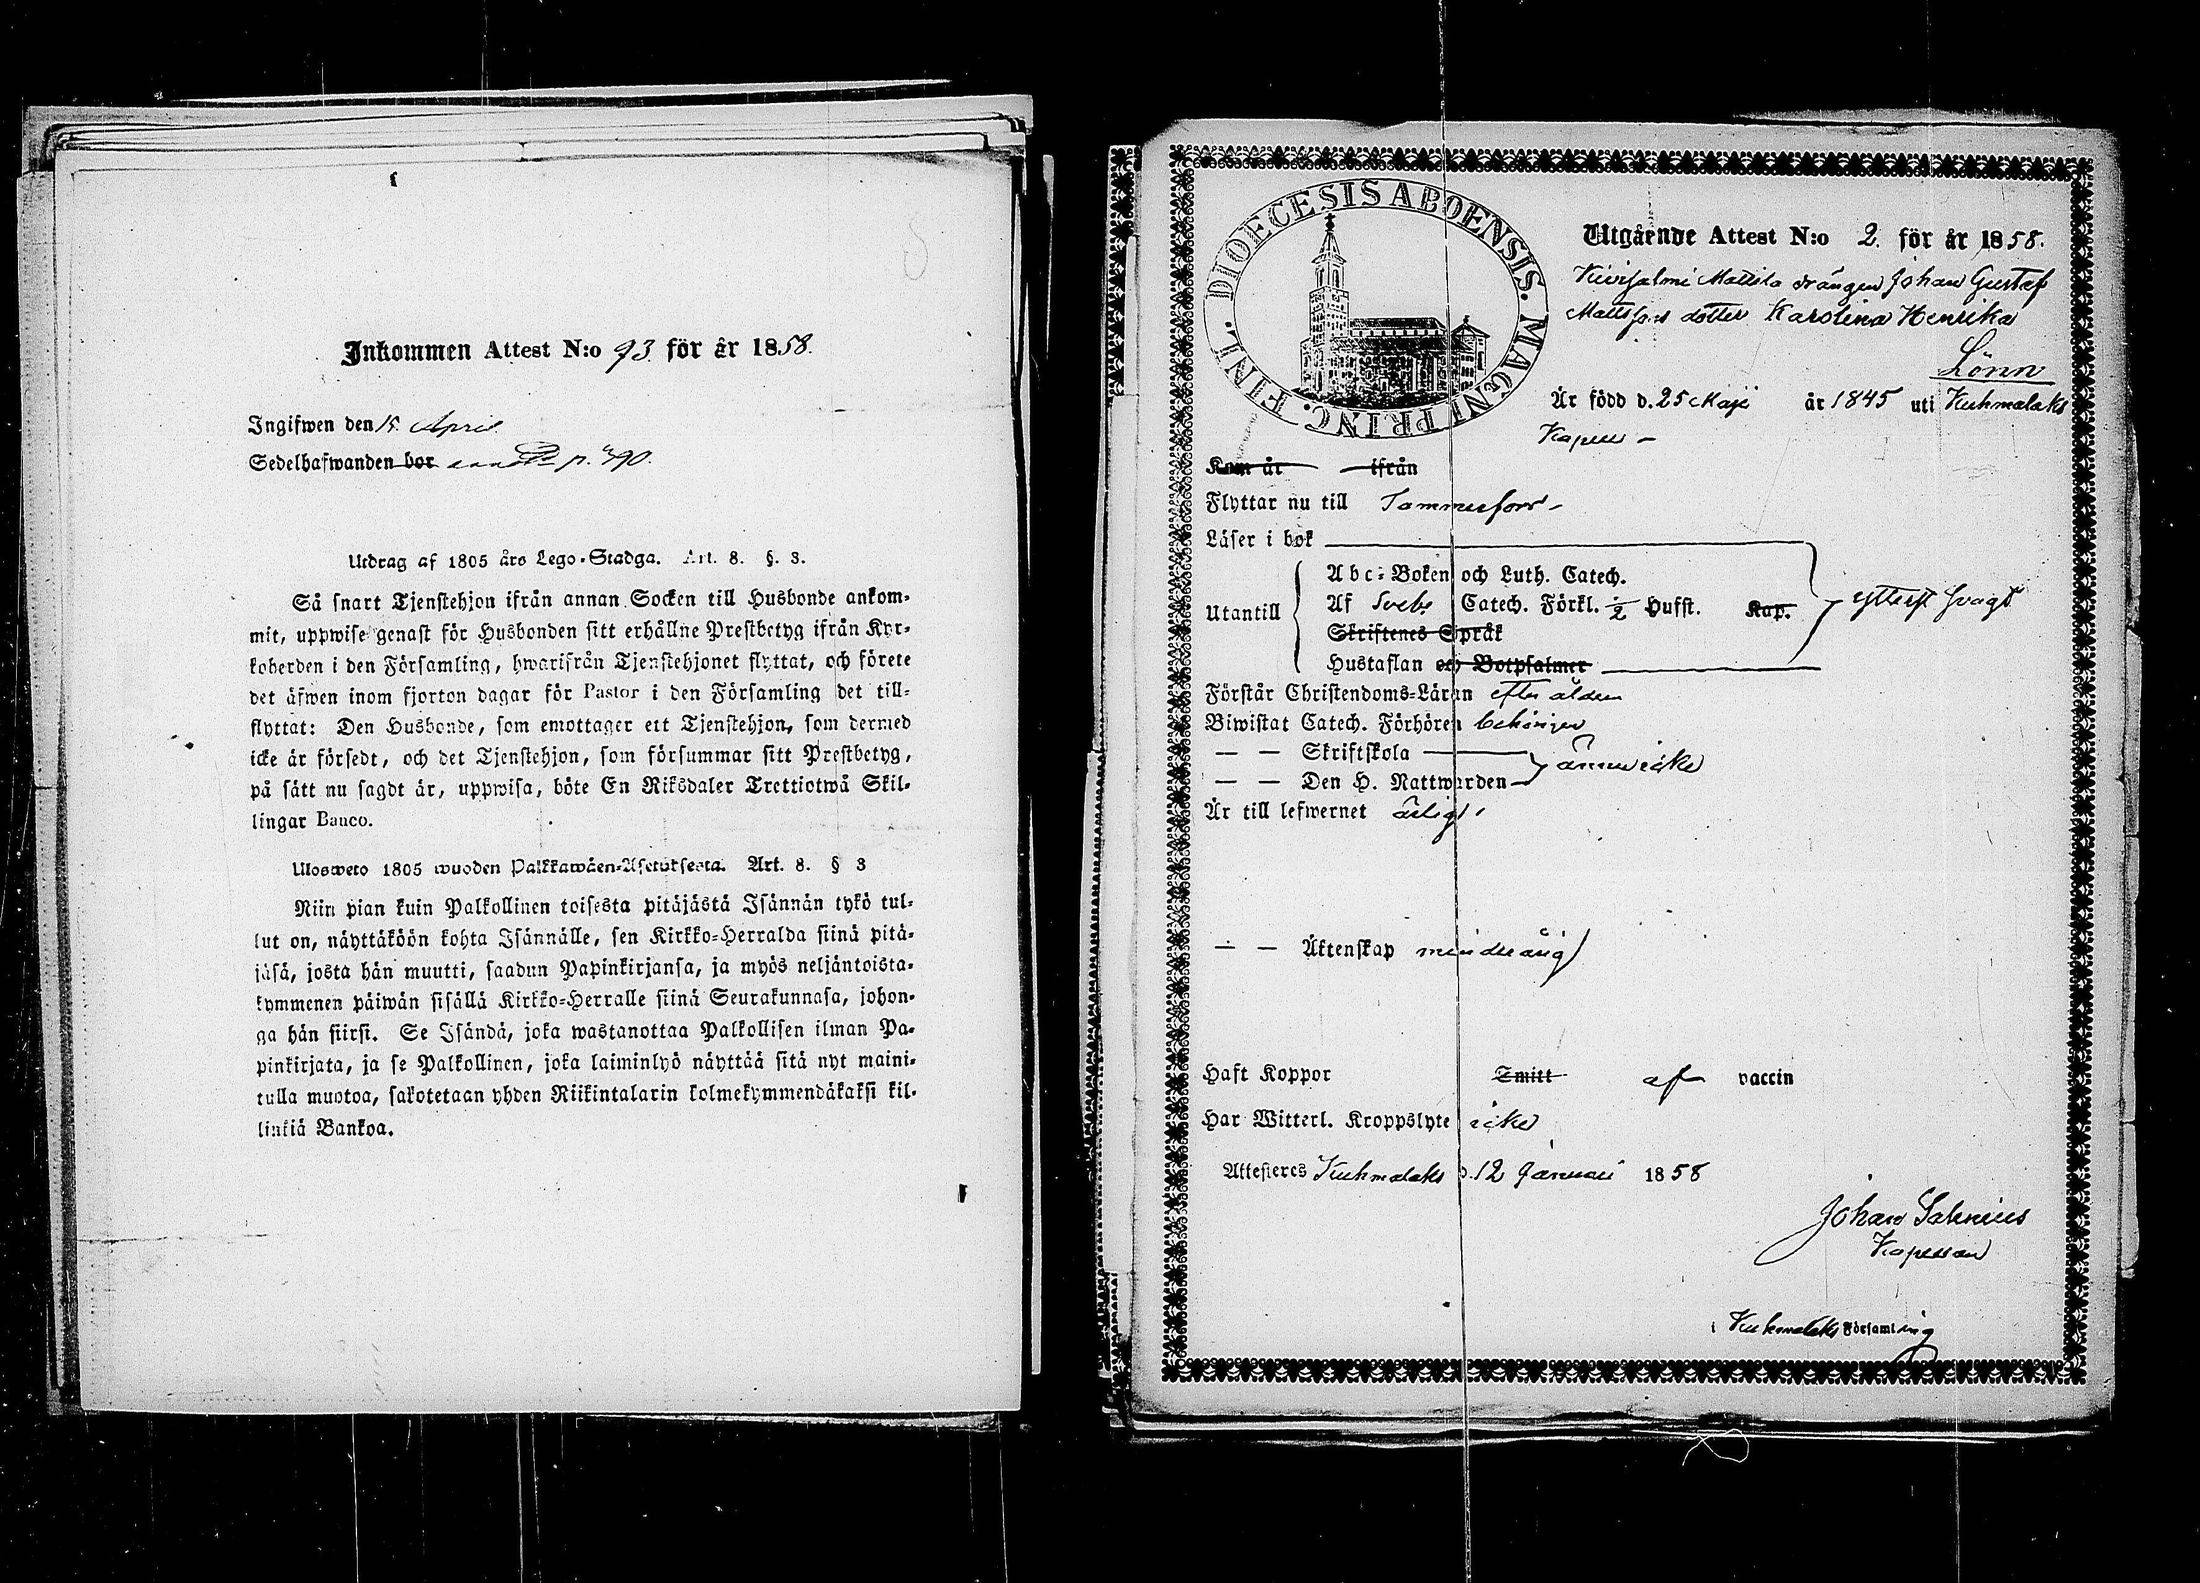 Inkommen Attest N:o 93 för år 1858.
Ingifwen den 15 April
Sedelhafwanden bor p. 490.
Utdrag af 1805 års Lego-Stadga. Art. 8. §. 3.
Så snart Tjenstehjon ifrån annan Socken till Husbonde ankom-
mit, uppwise genast för Husbonden sitt erhållne Prestbetyg ifrån Kyr-
koherden i den Församling, hwarifrån Tjenstehjonet flyttat, och förete
det äfwen inom fjorton dagar för Pastor i den Församling det till-
flyttat: Den Husbonde, som emottager ett Tjenstehjon, som dermed
icke är försedt, och det Tjenstehjon, som försummar sitt Prestbetyg,
på sätt nu sagdt är, uppwisa, böte En Riksdaler Trettiotwå Skil-
lingar Banco.
Ulosweto 1805 wuoden Palkkawäen-Asetuksesta. Art. 8. § 3
Niin pian kuin Palkollinen toisesta pitäjästä Isännän tykö tul-
lut on, näyttäköön kohta Isännälle, sen Kirkko-Herralda siinä pitä-
jäsä, josta hän muutti, saadun Papinkirjansa, ja myös neljäntoista-
kymmenen päiwän sisällä Kirkko-Herralle siinä Seurakunnasa, johon-
ga hän siirsi. Se Isändä, joka wastanottaa Palkollisen ilman Pa-
pinkirjata, ja se Palkollinen, joka laiminlyö näyttää sitä nyt maini-
tulla muotoa, sakotetaan yhden Riikintalarin kolmekymmendäkaksi kil-
linkiä Bankoa.
DIOECESIS ABOENSIS. MAGNI PRINC. FINL.
Utgående Attest N:o 2. för år 1858.
Kivisalmi Mattila drängen Johan Gustaf
Mattssons dotter Karolina Henrika
Lönn
Är född d. 25 Maji år 1845 uti Kuhmalaks
Kapell –
Kom år ifrån
Flyttar nu till Tammerfors –
Läser i bok
Utantill
Abc-Boken och Luth. Catech.
Af Sveb. Catech. Förkl. ½ Hufst. Kap.
Skriftenes Språk
Hustaflan och Botpsalmer
ytterst svagt
Förstår Christendoms-Läran efter åldern
Biwistat Catech. Förhören behörigen
— — Skriftskola
— — Den H. Nattwarden
ännu icke
Är till lefwernet ärligt
— — Äktenskap minderårig
Haft Koppor Smitt af vaccin
Har Witterl. Kroppslyte icke
Attesteres Kuhmalaks d. 12 Januari 1858
Johan Salenius
Kapellan
i Kuhmalaks Församling